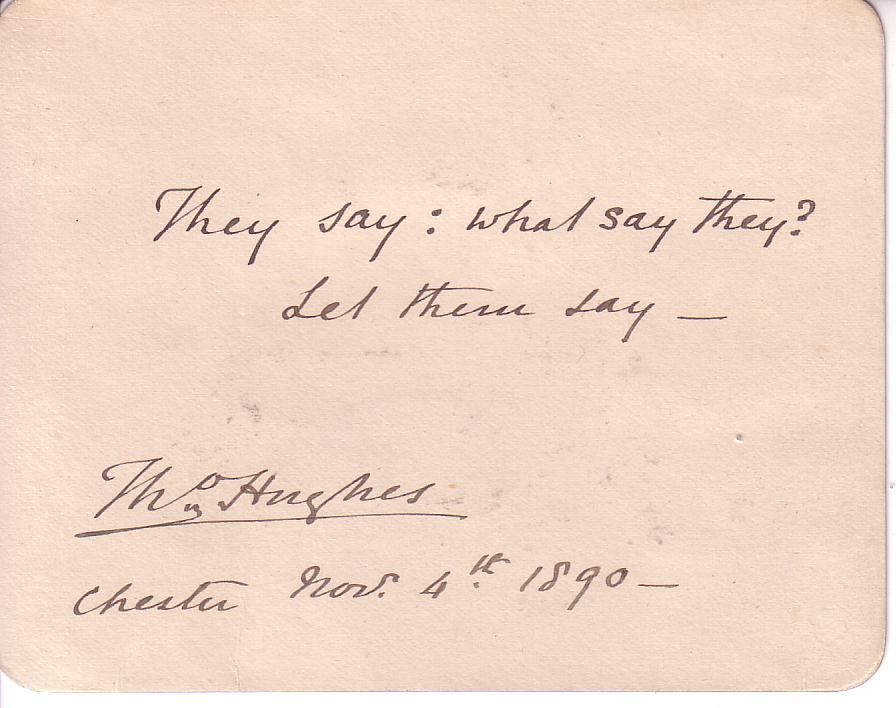 They say: what say they?
Let them say —
Thos. Hughes
Chester Nov. 4th. 1890 —